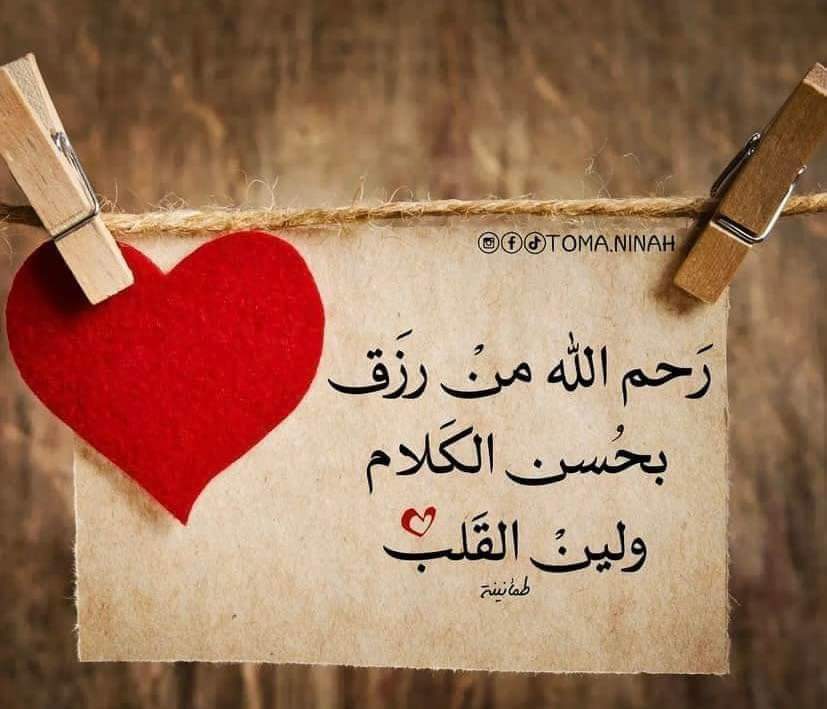 TOMA.NINAH
رَحم الله منْ رزَق
بحُسن الكَلام
ولينْ القَلب
طمأنينة